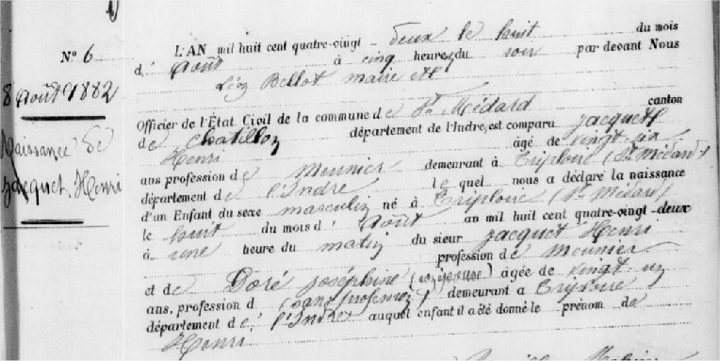 N° 6
8 Août 1882
Naissance de
Jacquet Henri
L'AN mil huit cent quatre-vingt deux le huit du mois
d' Août à cinq heures du soir par devant Nous
Léon Bellot maire et
Officier de l'État Civil de la commune de St Médard canton
de Chatillon département de l'Indre, est comparu Jacquet
Henri âgé de vingt
ans profession de Meunier demeurant à Triploire (St Médard)
département de l'Indre lequel nous a déclaré la naissance
d'un Enfant du sexe masculin né à Triploire (St Médard)
le huit du mois d' Août an mil huit cent quatre-vingt-deux
à une heure du matin du sieur Jacquet Henri
profession de meunier
et de Doré Joséphine (son épouse) âgée de vingt un
ans, profession d (sans profession) demeurant à Triploire
département de l'Indre auquel enfant il a été donné le prénom de
Henri